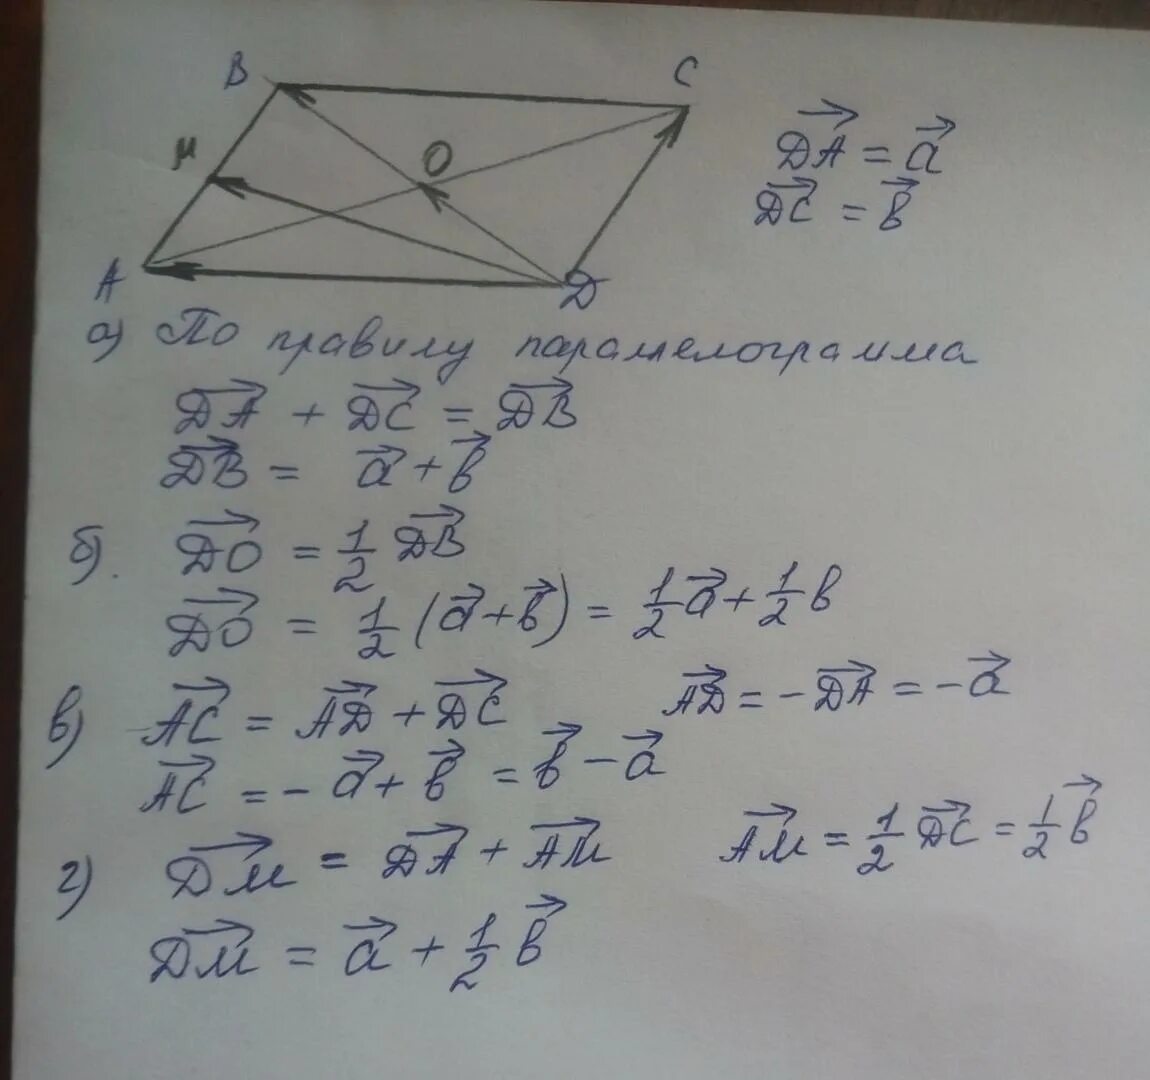 B
C
M
O
A
D
\vec{DA} = \vec{a}
\vec{DC} = \vec{b}
а) По правилу параллелограмма
\vec{DA} + \vec{DC} = \vec{DB}
\vec{DB} = \vec{a} + \vec{b}
б). \vec{DO} = \frac{1}{2} \vec{DB}
\vec{DO} = \frac{1}{2} (\vec{a} + \vec{b}) = \frac{1}{2}\vec{a} + \frac{1}{2} b
в) \vec{AC} = \vec{AD} + \vec{DC} \vec{AD} = -\vec{DA} = -\vec{a}
\vec{AC} = -\vec{a} + \vec{b} = \vec{b} - \vec{a}
г) \vec{DM} = \vec{DA} + \vec{AM} \vec{AM} = \frac{1}{2} \vec{DC} = \frac{1}{2} \vec{b}
\vec{DM} = \vec{a} + \frac{1}{2} \vec{b}